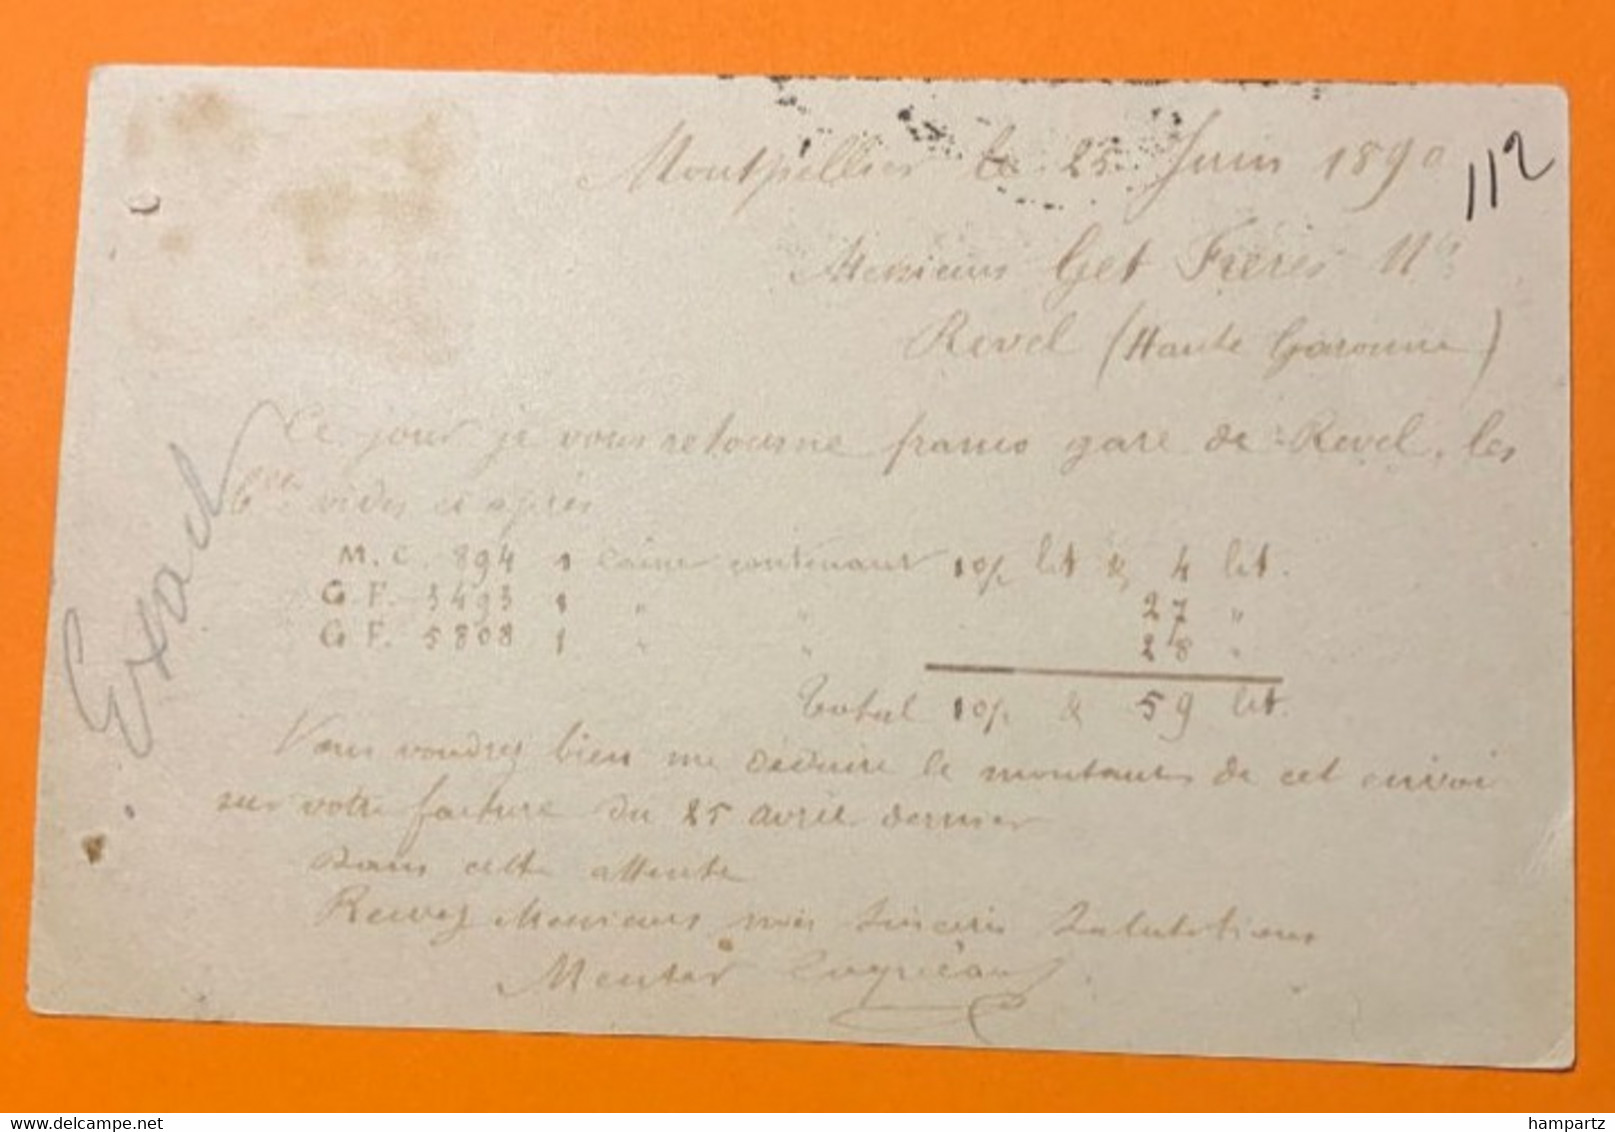 Montpellier le 25 Juin 1890
112
Messieurs Get Frères
Revel (Haute Garonne)
Ce jour je vous retourne franco gare de Revel, les
vides ci après
M. C. 894 1 Caisse contenant 10/2 lit & 4 lit.
G F. 3493 1 " " 27 "
G F. 5808 1 " " 28 "
Total 10/2 & 59 lit.
Vous voudrez bien me déduire le montant de cet envoi
sur votre facture du 25 avril dernier
Dans cette attente
Recevez Messieurs mes sincères Salutations
Exact
hampartz